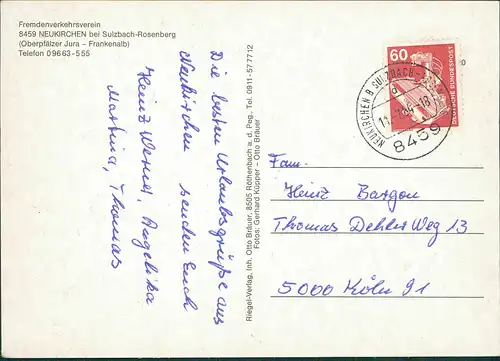 Fremdenverkehrsverein
8459 NEUKIRCHEN bei Sulzbach-Rosenberg
(Oberpfälzer Jura – Frankenalb)
Telefon 09663-555
Die besten Urlaubsgrüße aus
Neukirchen senden Euch
Heinz Werner, Angelika
Martina, Thomas
Riegel-Verlag, Inh. Otto Bräuer, 8505 Röthenbach a. d. Peg., Tel. 0911-577712
Fotos: Gerhard Küpper – Otto Bräuer
60
DEUTSCHE BUNDESPOST
NEUKIRCHEN B SULZBACH-
8459
Fam.
Heinz Bargon
Thomas Dehler Weg 13
5000 Köln 91